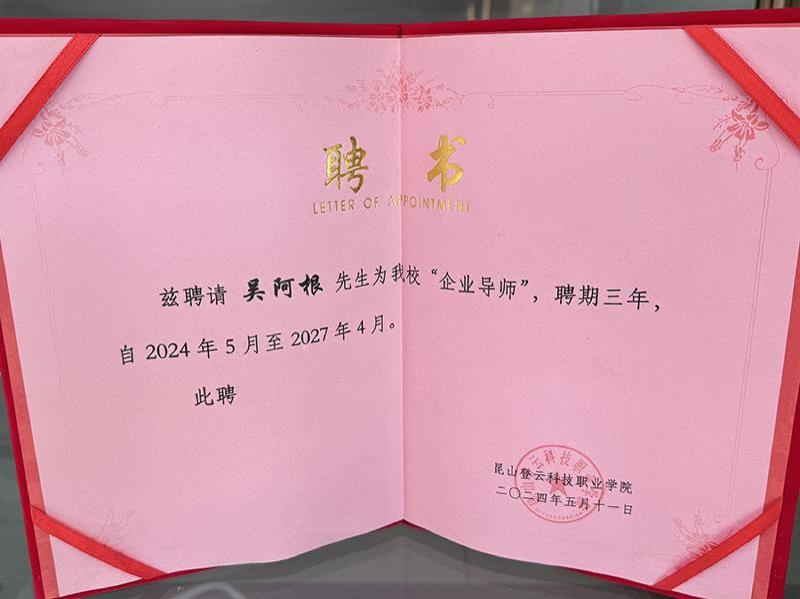 聘 书
LETTER OF APPOINTMENT
兹聘请 吴阿根 先生为我校“企业导师”，聘期三年，
自 2024 年 5 月至 2027 年 4 月。
此聘
昆山登云科技职业学院
二〇二四年五月十一日